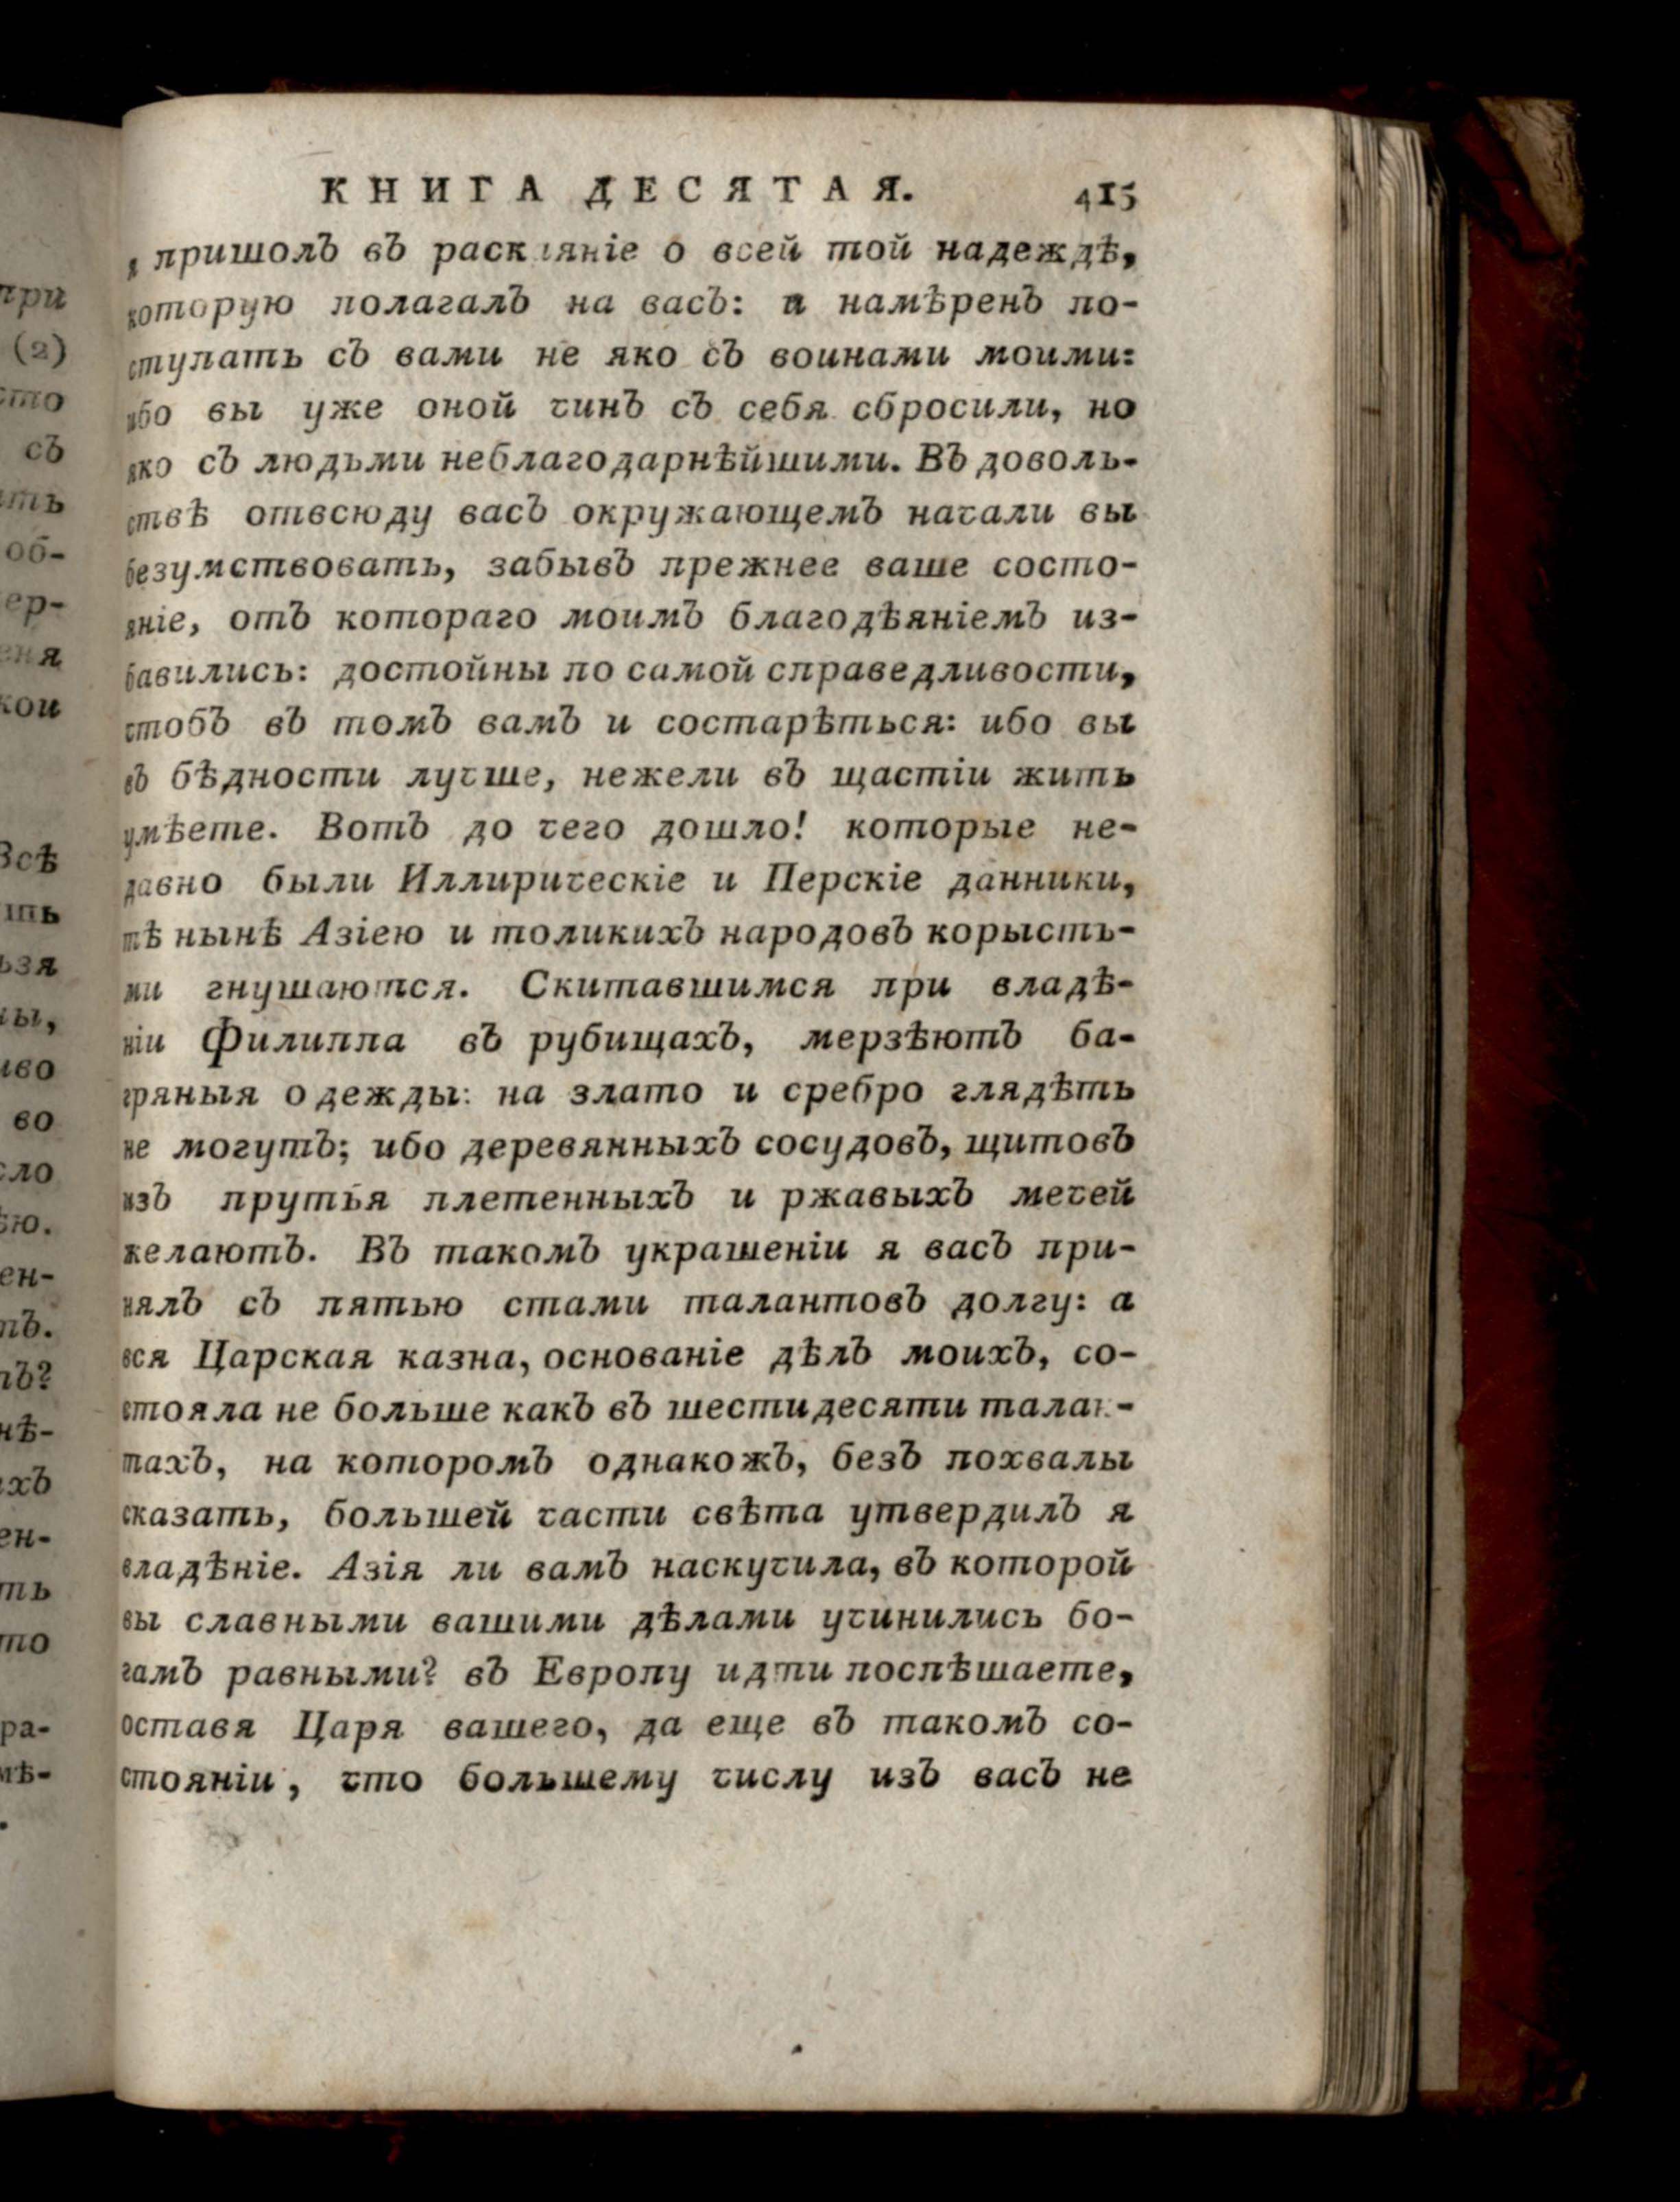 КНИГА ДЕСЯТАЯ. 415
я пришолъ въ раскаяніе о всей той надеждѣ,
которую полагалъ на васъ: и намѣренъ по-
ступать съ вами не яко съ воинами моими:
ибо вы уже оной чинъ съ себя сбросили, но
яко съ людьми неблагодарнѣйшими. Въ доволь-
ствѣ отвсюду васъ окружающемъ начали вы
безумствовать, забывъ прежнее ваше состо-
яніе, отъ котораго моимъ благодѣяніемъ из-
бавились: достойны по самой справедливости,
чтобъ въ томъ вамъ и состарѣться: ибо вы
въ бѣдности лучше, нежели въ щастіи жить
умѣете. Вотъ до чего дошло! которые не-
давно были Иллирическіе и Перскіе данники,
тѣ нынѣ Азіею и толикихъ народовъ корысть-
ми гнушаются. Скитавшимся при владѣ-
ніи Филиппа въ рубищахъ, мерзѣютъ ба-
гряныя одежды: на злато и сребро глядѣть
не могутъ; ибо деревянныхъ сосудовъ, щитовъ
изъ прутья плетенныхъ и ржавыхъ мечей
желаютъ. Въ такомъ украшеніи я васъ при-
нялъ съ пятью стами талантовъ долгу: а
вся Царская казна, основаніе дѣлъ моихъ, со-
стояла не больше какъ въ шестидесяти талан-
тахъ, на которомъ однакожъ, безъ похвалы
сказать, большей части свѣта утвердилъ я
владѣніе. Азія ли вамъ наскучила, въ которой
вы славными вашими дѣлами учинились бо-
гамъ равными? въ Европу идти поспѣшаете,
оставя Царя вашего, да еще въ такомъ со-
стояніи, что большему числу изъ васъ не